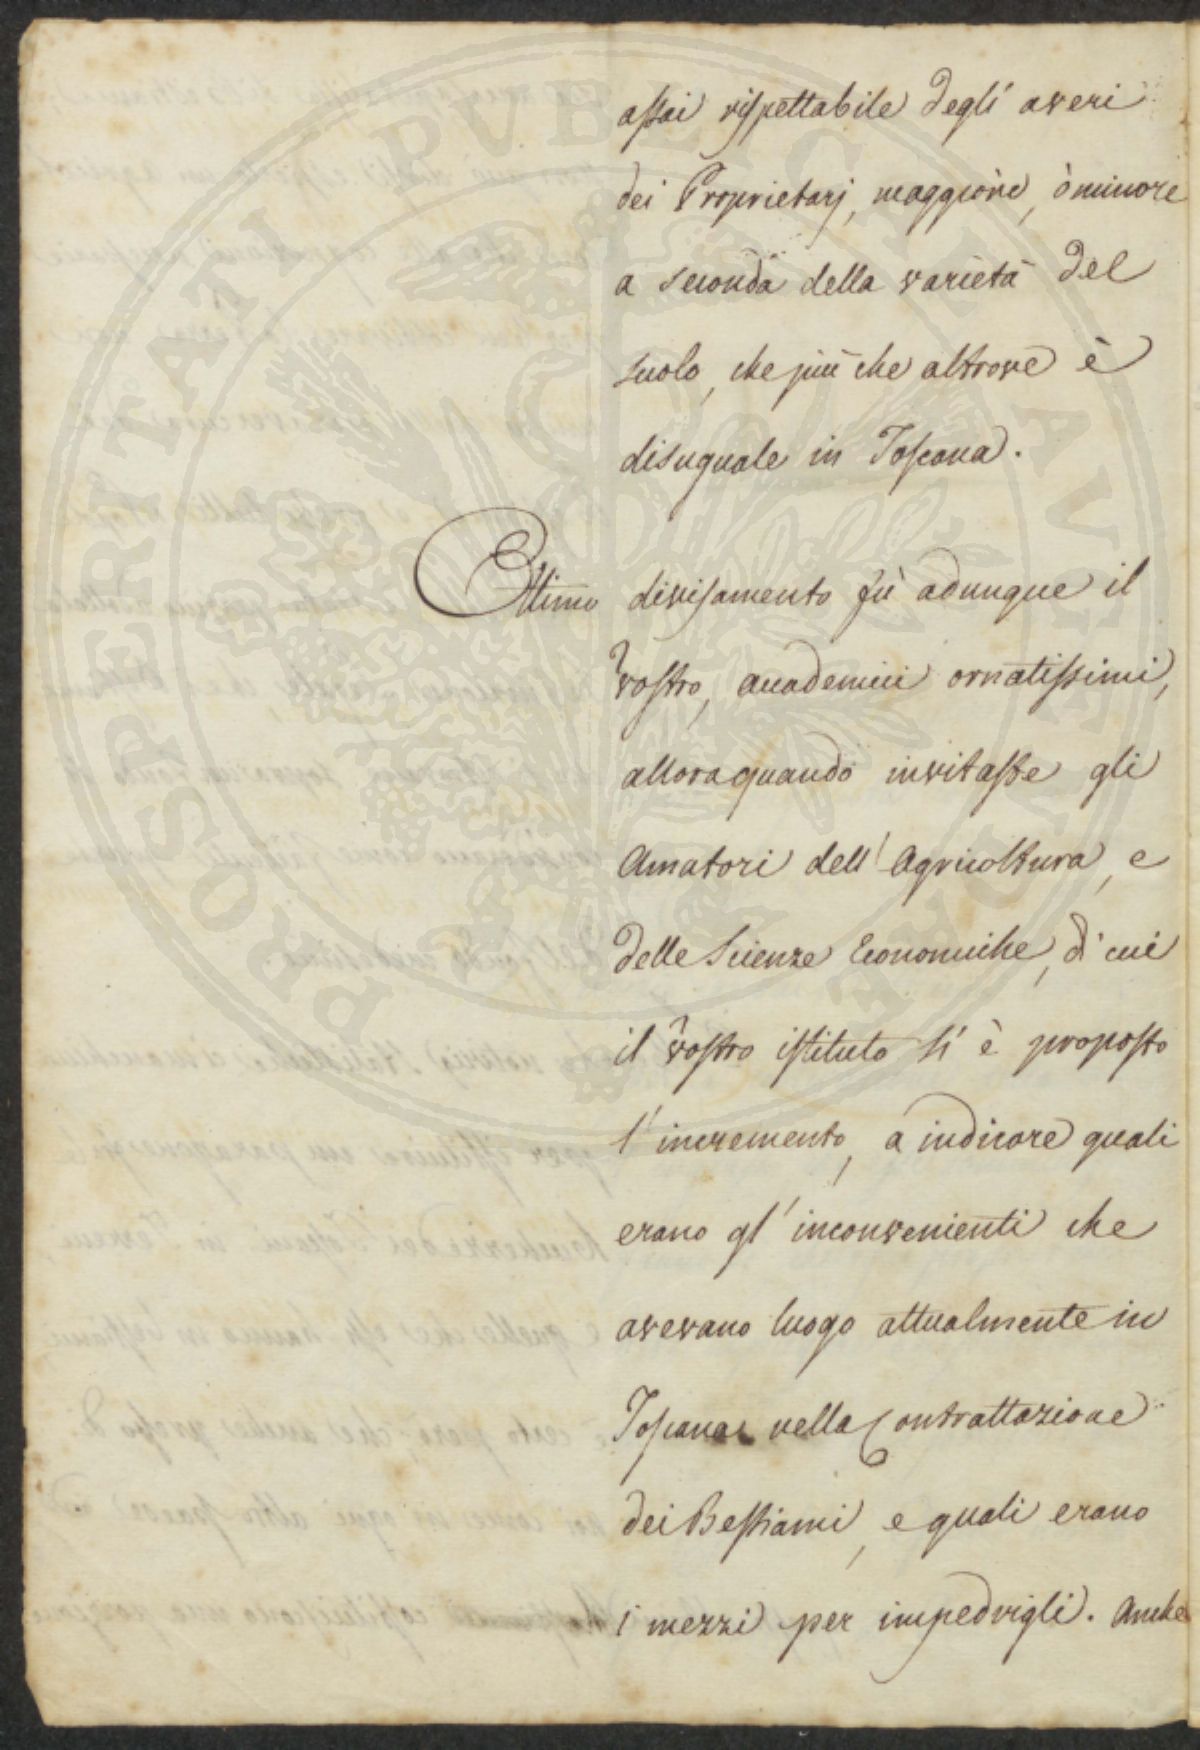 assai rispettabile degli averi
dei Proprietarj, maggiore, ò minore
a seconda della varietà del
suolo, che più che altrove è
disuguale in Toscana.
Ottimo divisamento fù adunque il
vostro, accademici ornatissimi,
alloraquando invitaste gli
Amatori dell'Agricoltura, e
delle Scienze Economiche, di cui
il vostro istituto si è proposto
l'incremento, a indicare quali
erano gl'inconvenienti che
avevano luogo attualmente in
Toscana nella Contrattazione
dei Bestiami, e quali erano
i mezzi per impedirgli. Anche
PROSPERITATI PVBLICAE AVGENDAE